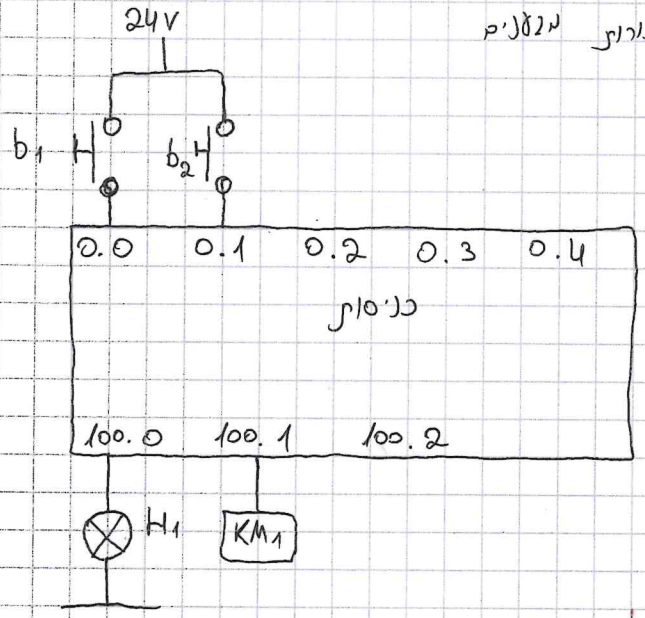 24V
מבצעים
b1 b2
0.0 0.1 0.2 0.3 0.4
כניסות
100.0 100.1 100.2
H1 KM1